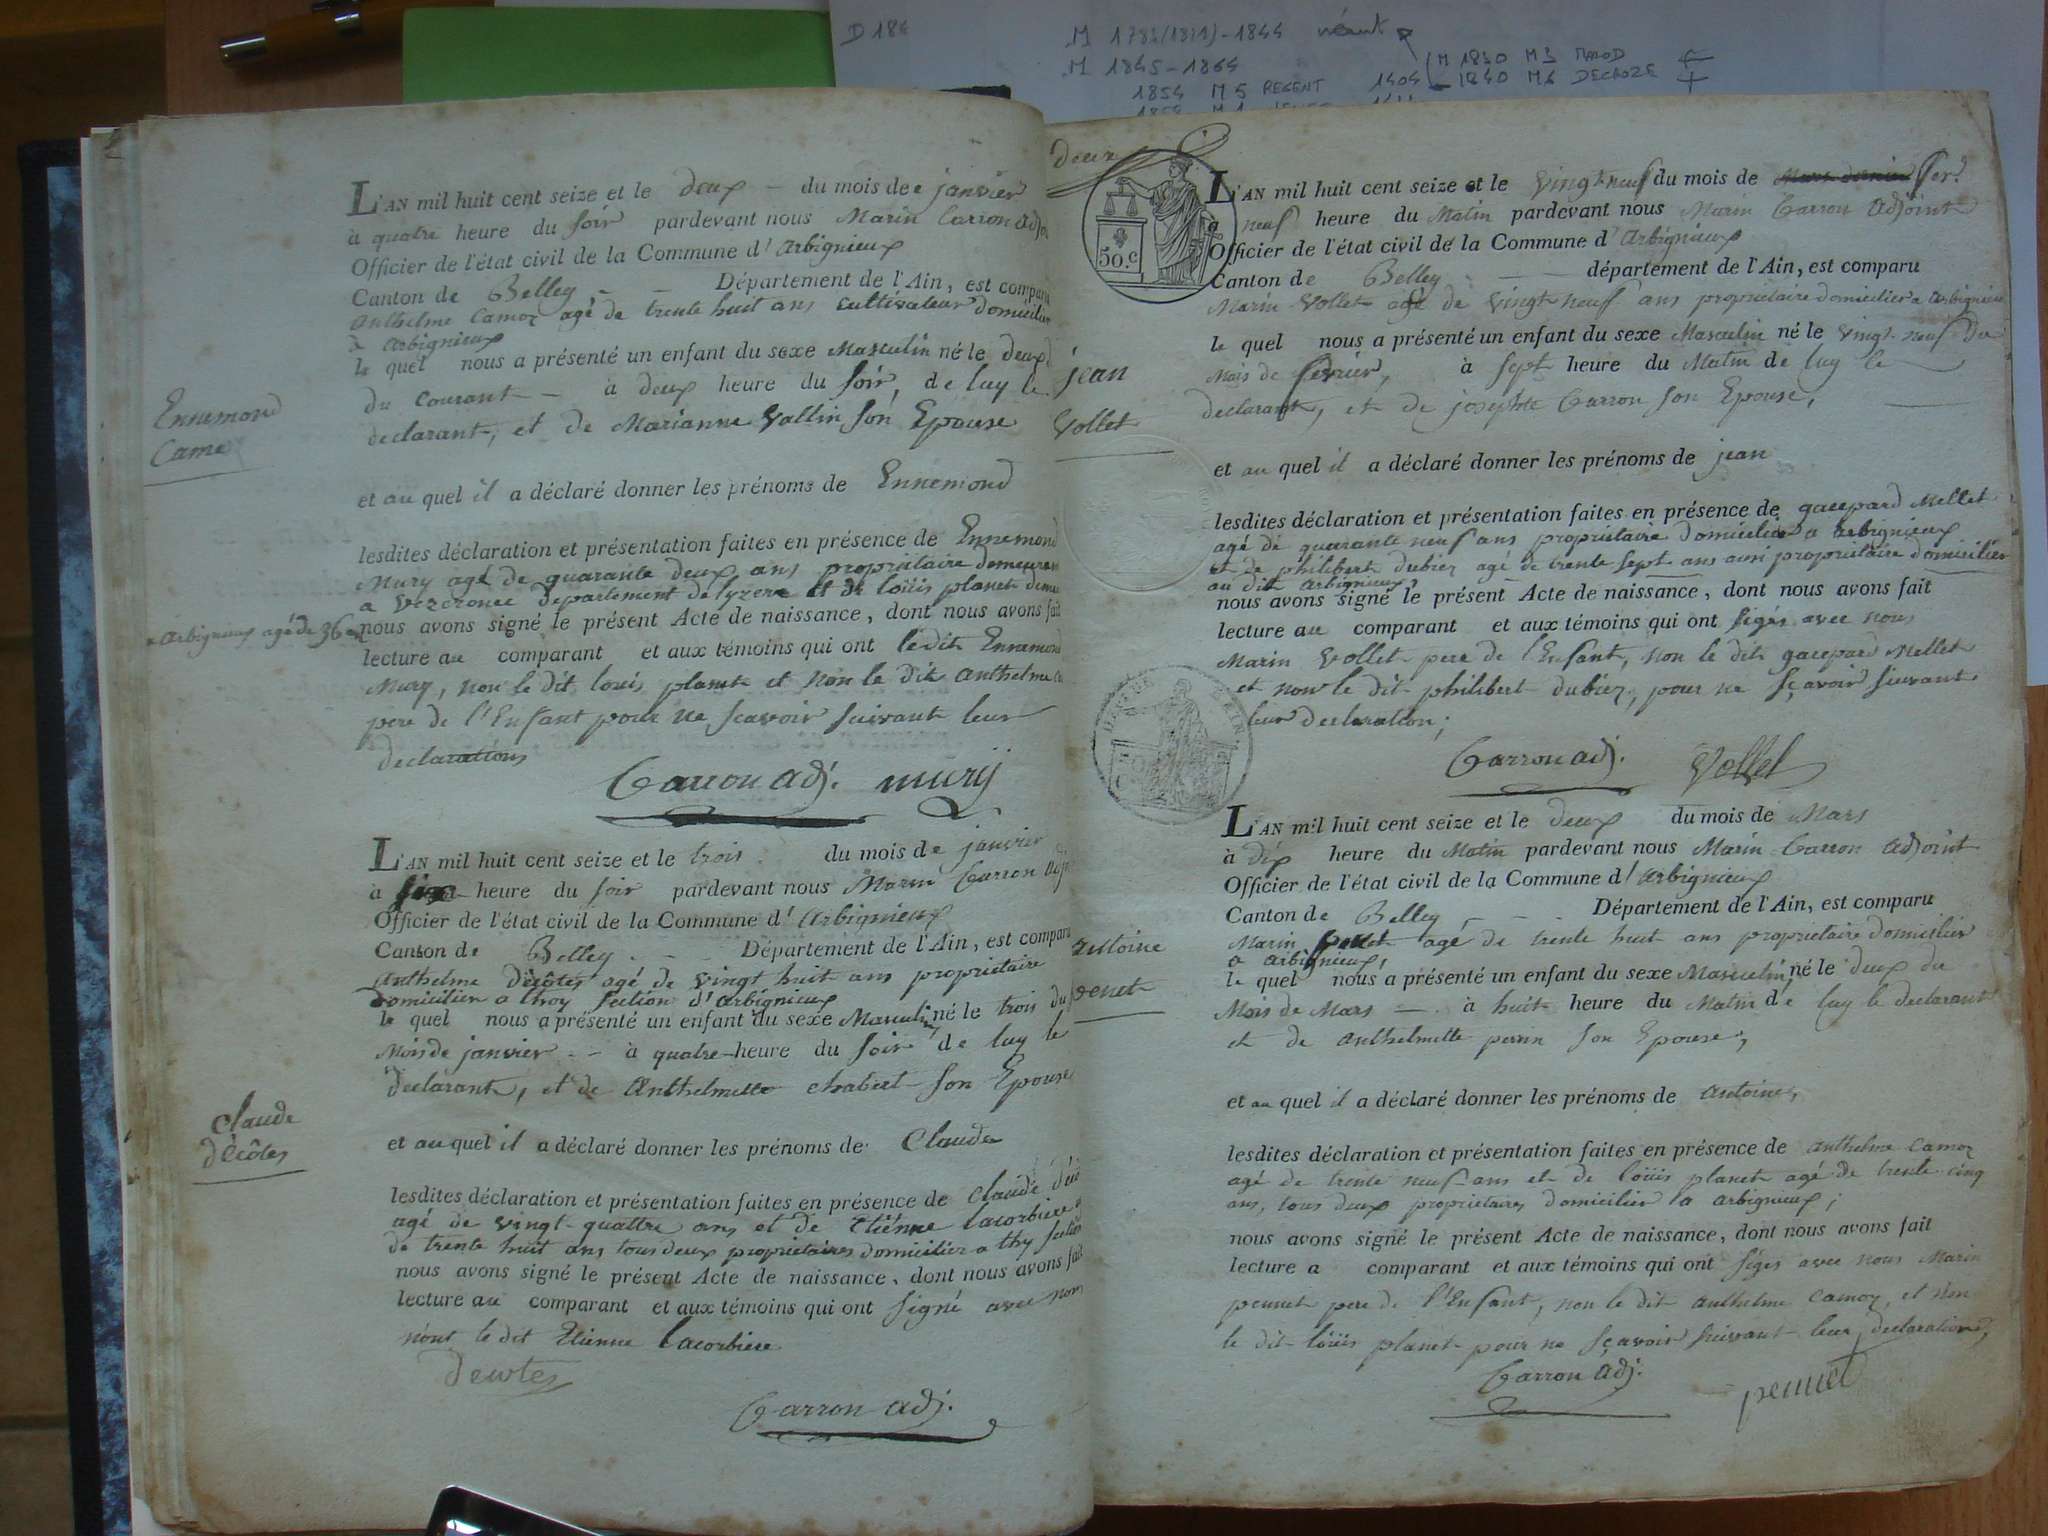 D 184
M 1781(1821)-1844 néant
M 1845-1864
M 1830 M3 MAROD
1840 M6 DECROZE
1854 M5 REGENT 1404
L'AN mil huit cent seize et le deux du mois de janvier
à quatre heure du soir pardevant nous Marin Carron adjoi
Officier de l'état civil de la Commune d'Arbignieux
Canton de Belley Département de l'Ain, est comparu
Anthelme Camoz agé de trente huit ans cultivateur domicilier
à Arbignieux
le quel nous a présenté un enfant du sexe Masculin né le deux
du courant à deux heure du soir, de luy le
declarant, et de Marianne Vallin son Epouse
Ennemond
Camo
et au quel il a déclaré donner les prénoms de Ennemond
lesdites déclaration et présentation faites en présence de Ennemond
Mury agé de quarante deux ans proprietaire demeurant
a Vezeronce departement de lyzere et de loüis planet deme
a Arbignieux agé de 36 an
nous avons signé le présent Acte de naissance, dont nous avons fait
lecture au comparant et aux témoins qui ont ledit Ennemond
Mury, non le dit louis planet et non le dit Anthelme
pere de l'Enfant pour ne scavoir suivant leur
declarations
Carron adj. mury
L'AN mil huit cent seize et le trois du mois de janvier
à six heure du soir pardevant nous Marin Carron adj
Officier de l'état civil de la Commune d'Arbignieux
Canton de Belley Département de l'Ain, est comparu
Anthelme Décôtes agé de vingt huit ans proprietaire
domicilier a thoy section d'Arbignieux
le quel nous a présenté un enfant du sexe Masculin, né le trois du
Mois de janvier à quatre heure du soir de luy le
declarant, et de Anthelmette chabert son Epouse
Claude
Décôtes
et au quel il a déclaré donner les prénoms de Claude
lesdites déclaration et présentation faites en présence de Claude Déc
agé de vingt quattre ans et de Etiénne lacorbiere
de trente huit ans tous deux proprietaires domicilier a thy section
nous avons signé le présent Acte de naissance, dont nous avons fait
lecture au comparant et aux témoins qui ont signé avec nous
non le dit Etienne lacorbiere
Decotes
Carron adj.
deux
50.c
L'AN mil huit cent seize et le vingt neuf du mois de fer.
à neuf heure du Matin pardevant nous Marin Carron adjoint
Officier de l'état civil de la Commune d'Arbignieux
Canton de Belley département de l'Ain, est comparu
Marin Vollet agé de vingt neuf ans proprietaire domicilier a Arbignieux
le quel nous a présenté un enfant du sexe Masculin né le vingt neuf du
Mois de fevrier, à sept heure du Matin de luy le
declarant, et de josephte Carron son Epouse,
jean
Vollet
et au quel il a déclaré donner les prénoms de jean
lesdites déclaration et présentation faites en présence de gaespard Mellet
agé de quarante neuf ans proprietaire domicilier a Arbignieux
et de philibert dubiez agé de trente sept ans aussi proprietaire domicilier
au dit Arbignieux,
nous avons signé le présent Acte de naissance, dont nous avons fait
lecture au comparant et aux témoins qui ont signés avec nous
Marin Vollet pere de l'Enfant, non le dit gaespard Mellet
et non le dit philibert dubiez, pour ne sçavoir suivant
leur declaration;
Carron adj. Vollet
L'AN mil huit cent seize et le deux du mois de Mars
à dix heure du Matin pardevant nous Marin Carron adjoint
Officier de l'état civil de la Commune d'Arbignieux
Canton de Belley Département de l'Ain, est comparu
Marin agé de trente huit ans proprietaire domicilier
a Arbignieux,
le quel nous a présenté un enfant du sexe Masculin, né le deux du
Mois de Mars à huit heure du Matin de luy le declarant
et de Anthelmette perrin son Epouse,
Antoine
penet
et au quel il a déclaré donner les prénoms de Antoine,
lesdites déclaration et présentation faites en présence de Anthelme Camoz
agé de trente neuf ans et de loüis planet agé de trente cinq
ans, tous deux proprietaires domicilier a Arbignieux;
nous avons signé le présent Acte de naissance, dont nous avons fait
lecture a comparant et aux témoins qui ont signés avec nous Marin
pennet pere de l'Enfant, non le dit Anthelme Camoz, et non
le dit loüis planet pour ne sçavoir suivant leur declaration,
Carron adj. pennet